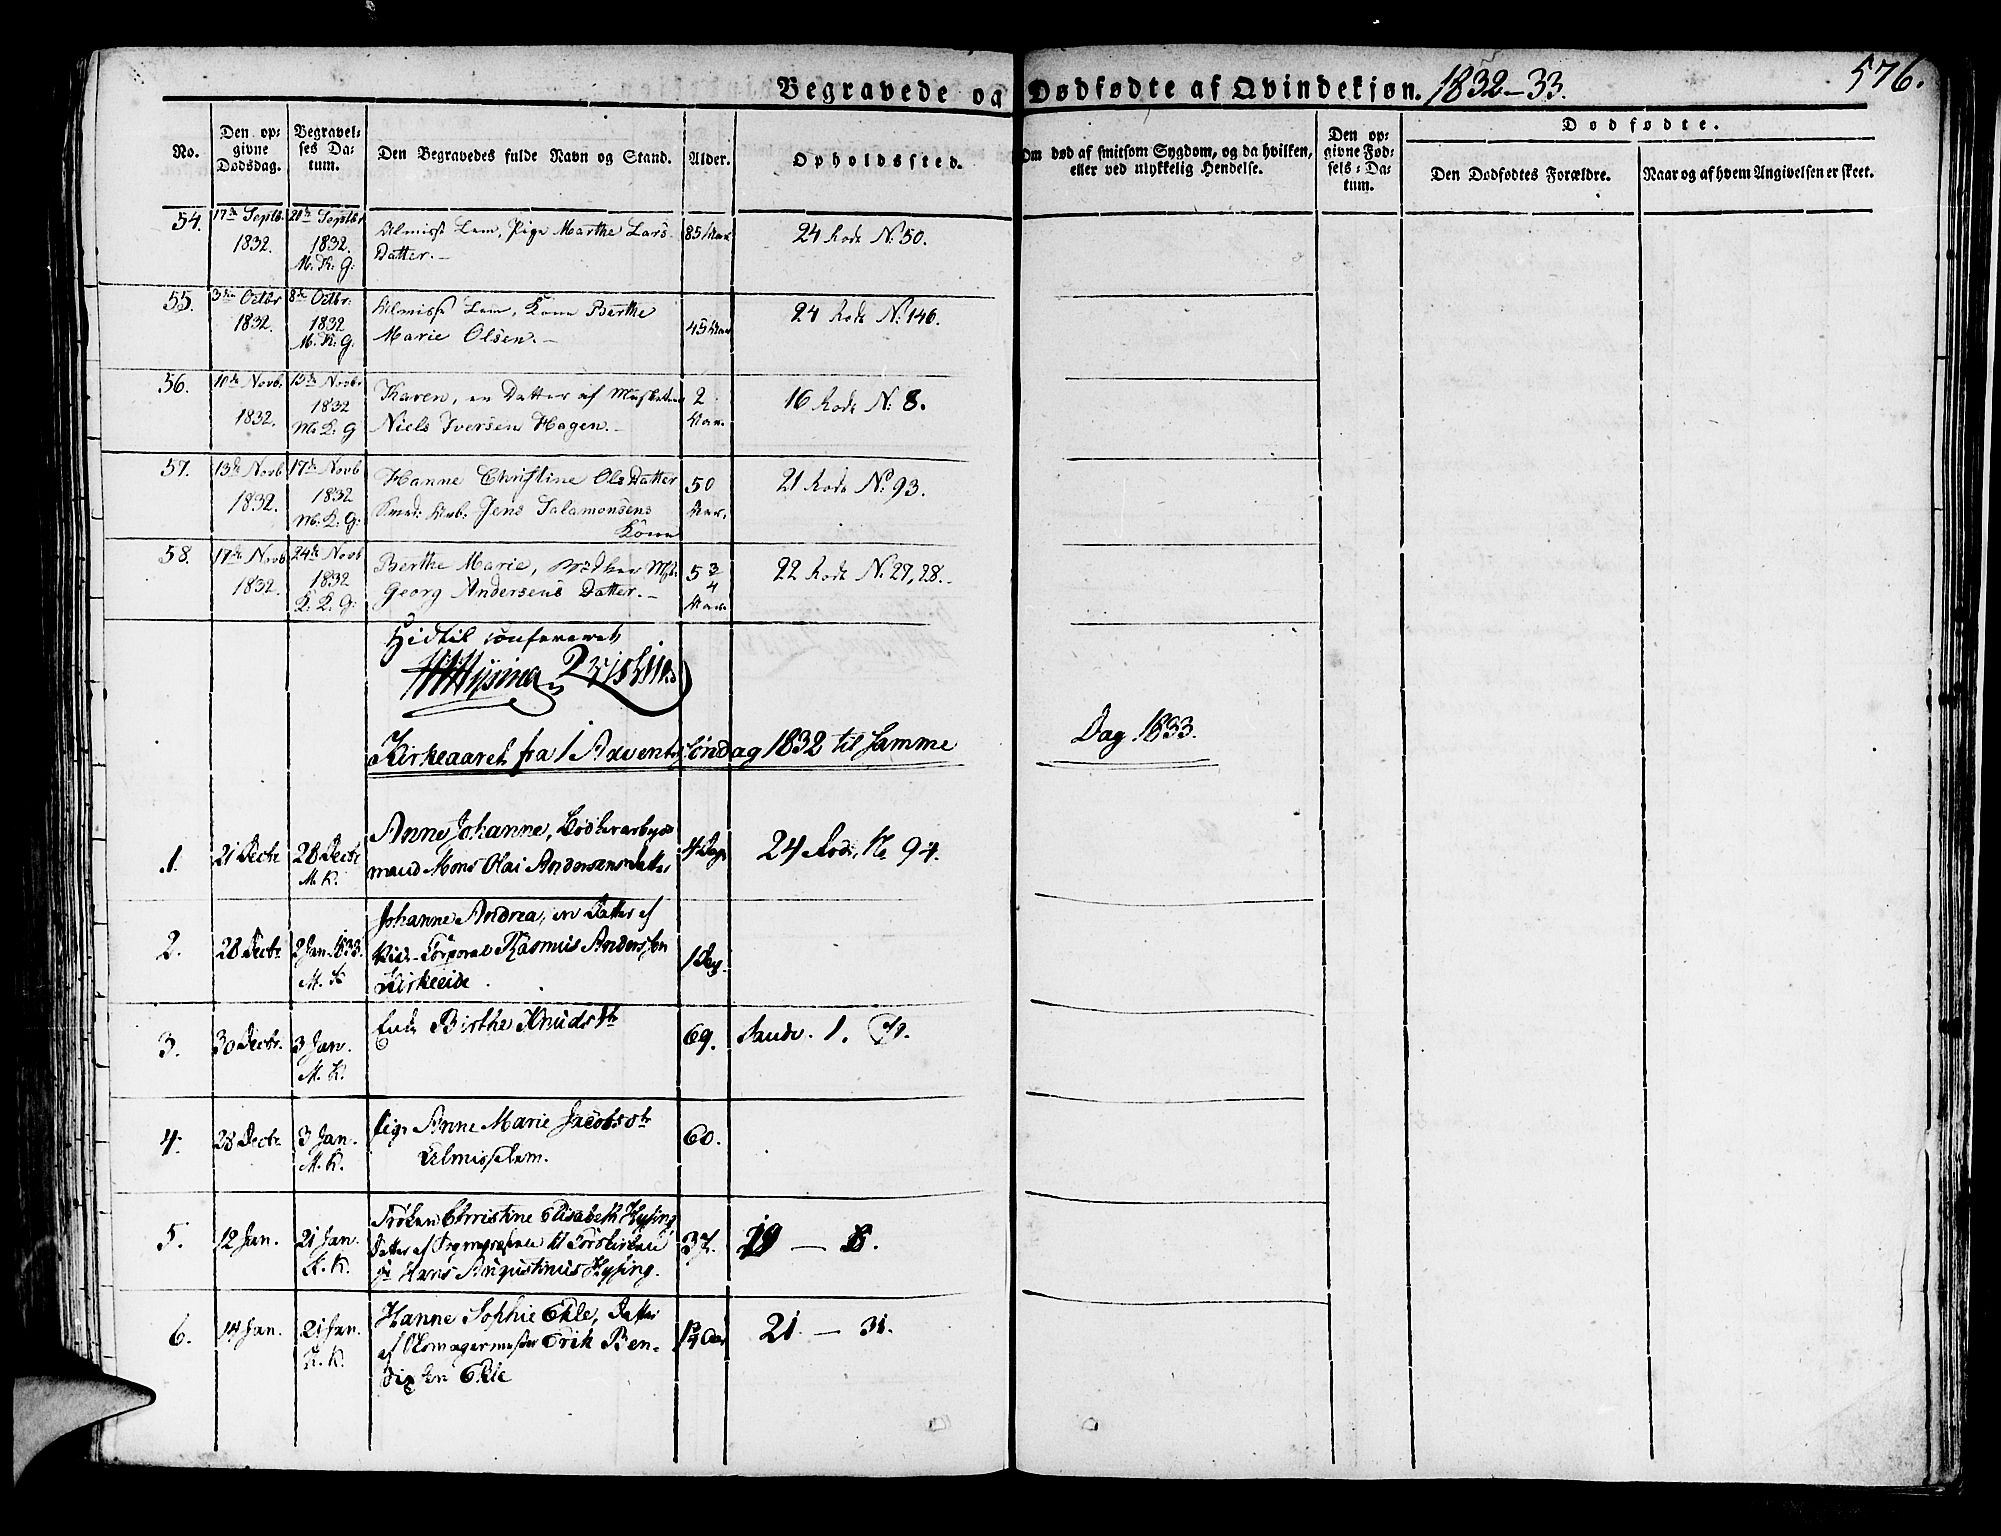 Begravede og Dødfødte af Qvindekjøn. 1832–33.
576.
No.
Den op-
givne
Dødsdag.
Begravel-
ses Da-
tum.
Den Begravedes fulde Navn og Stand.
Alder.
Opholdssted.
Om død af smitsom Sygdom, og da hvilken,
eller ved ulykkelig Hendelse.
Den op-
givne Fød-
sels-Da-
tum.
Dødfødte.
Den Dødfødtes Forældre.
Naar og af hvem Angivelsen er skeet.
54. 17de Septbr. 21de Septbr. Almisse Lem, Pige Marthe Lars 85 Aar 24 Rode No. 50.
1832. 1832. Datter.—
M. K. G.
55. 3die Octbr 8de Octbr. Almisse Lem, Kone Berthe 24 Rode No. 146.
1832. 1832 Marie Olsen.— 45 Aar
M. K. G.
56. 10de Novb. 15de Novbr. Karen, en Datter af Musketeer 2 16 Rode No. 8.
1832. 1832 Niels Iversen Hagen.— Aar.
M. K. G
57. 13de Novb 17de Novb Hanne Christine Ols Datter 50 21 Rode No. 93.
1832. 1832 Jens Salamonsens Aar.
M. K. G. Kone
58. 17de Novb 24de Novb Berthe Marie, Bødker 5 3/4 22 Rode No. 27, 28.
1832. 1832 Georg Andersens Datter.— Aar
K. K. G.
Hidtil confereret
Kirkeaaret fra 1 Advents Søndag 1832 til samme Dag 1833.
1. 21 Decbr 28 Decbr Anne Johanne, Bødkerarbeids- 4 Dage 24 Rode, No 94.
M. K. mand Mons Olai Andersens Datter
2. 28 Decbr 2 Jan. 1833. Johanne Andrea, en Datter af 1 Dag.
M. K Corporal Rasmus Andersen
Kirkeeide.
3. 30 Decbr. 3 Jan. Enke Birthe Knudsdtr 69. Sandv. 1.
M. K.
4. 28 Decbr. 3 Jan. Pige Anne Marie Jacobsdtr 60.
M. K. Almisselem.
5. 12 Jan. 21 Jan. Frøken Christine Elisabeth Hysing 37. 19 — 8.
K. K. Datter af Sognepræsten til Korskirken
Hr Hans Augustinus Hysing.
6. 14 Jan. 21 Jan. Hanne Sophie Ekle, Datter 21 — 31.
K. K. af Skomagermester Erik Ben-
dixen Ekle